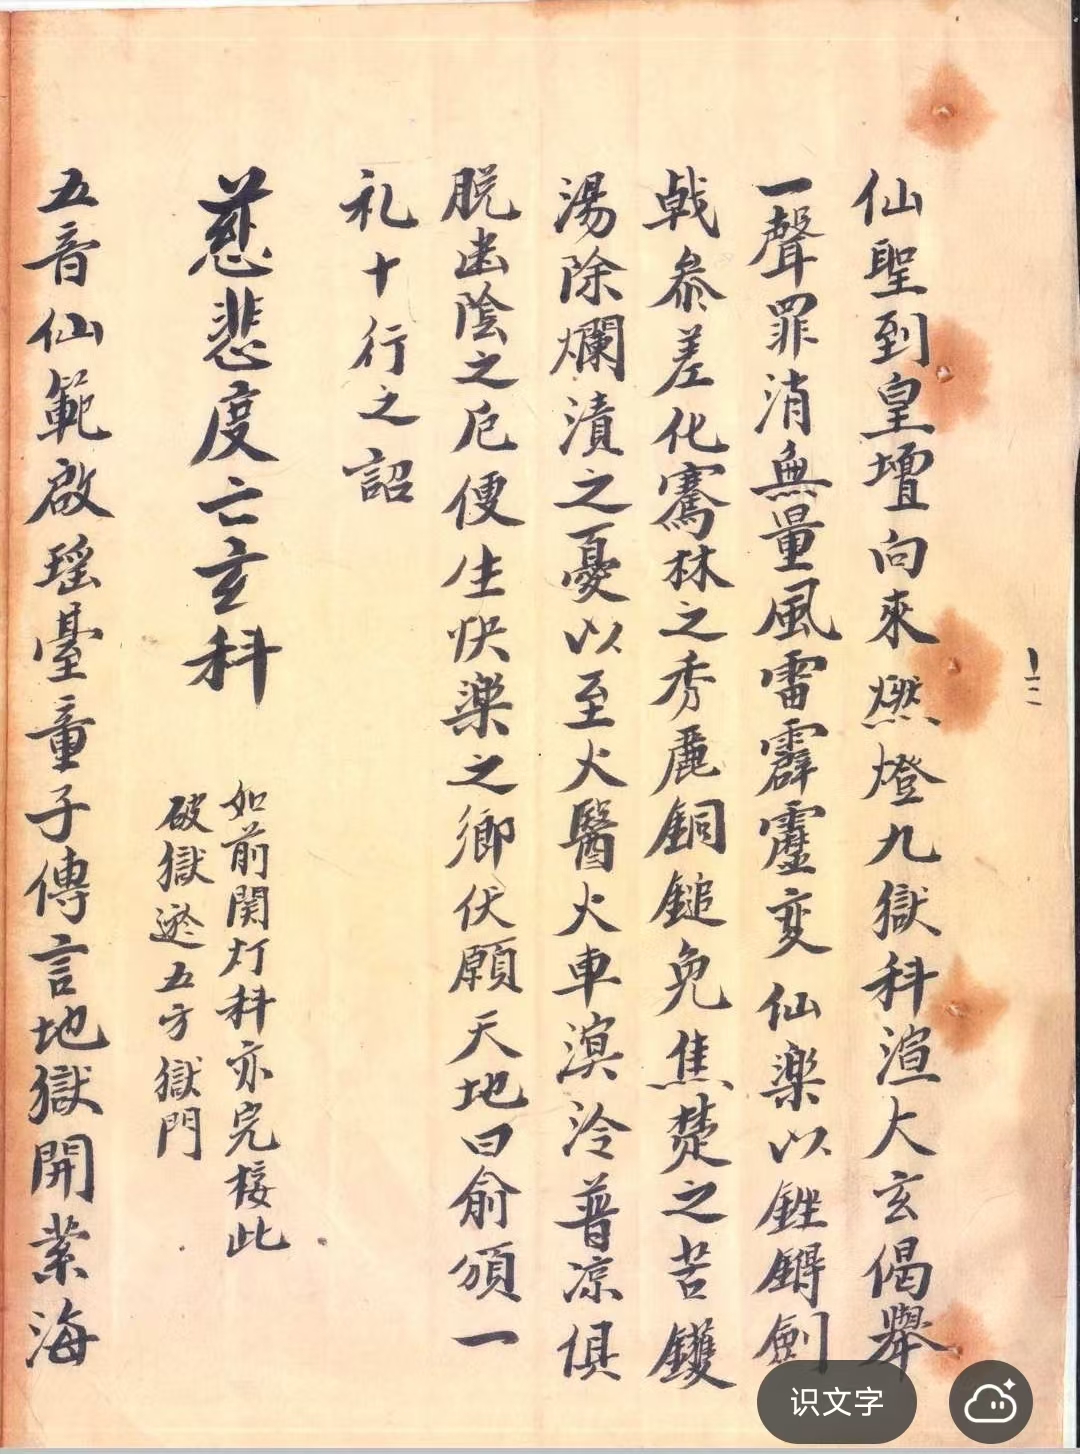 仙聖到皇壇向來燃燈九獄科渲大玄偈舉
一聲罪消無量風雷霹靂變仙楽以銼鐏劍
戟叅差化騫林之秀麗銅鎚免焦楚之苦鑊
湯除爛漬之憂以至火醫火車溟泠普凉俱
脱幽陰之厄便生快楽之鄉伏願天地曰俞頒一
礼十行之詔
慈悲度亡玄科
如前関灯科亦完接此
破獄遊五方獄門
五音仙範啟瑶臺童子傳言地獄開業海
识文字